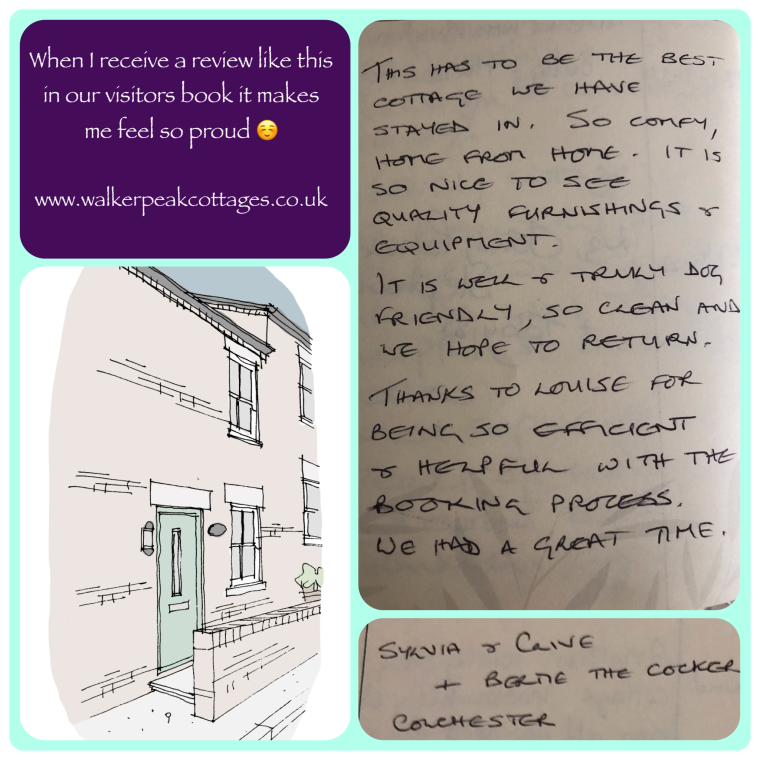 When I receive a review like this
in our visitors book it makes
me feel so proud ☺️
www.walkerpeakcottages.co.uk
THIS HAS TO BE THE BEST
COTTAGE WE HAVE
STAYED IN. SO COMFY,
HOME FROM HOME. IT IS
SO NICE TO SEE
QUALITY FURNISHINGS &
EQUIPMENT.
IT IS WELL & TRULY DOG
FRIENDLY, SO CLEAN AND
WE HOPE TO RETURN.
THANKS TO LOUISE FOR
BEING SO EFFICIENT
& HELPFUL WITH THE
BOOKING PROCESS.
WE HAD A GREAT TIME.
SYLVIA & CLIVE
+ BERTIE THE COCKER
COLCHESTER